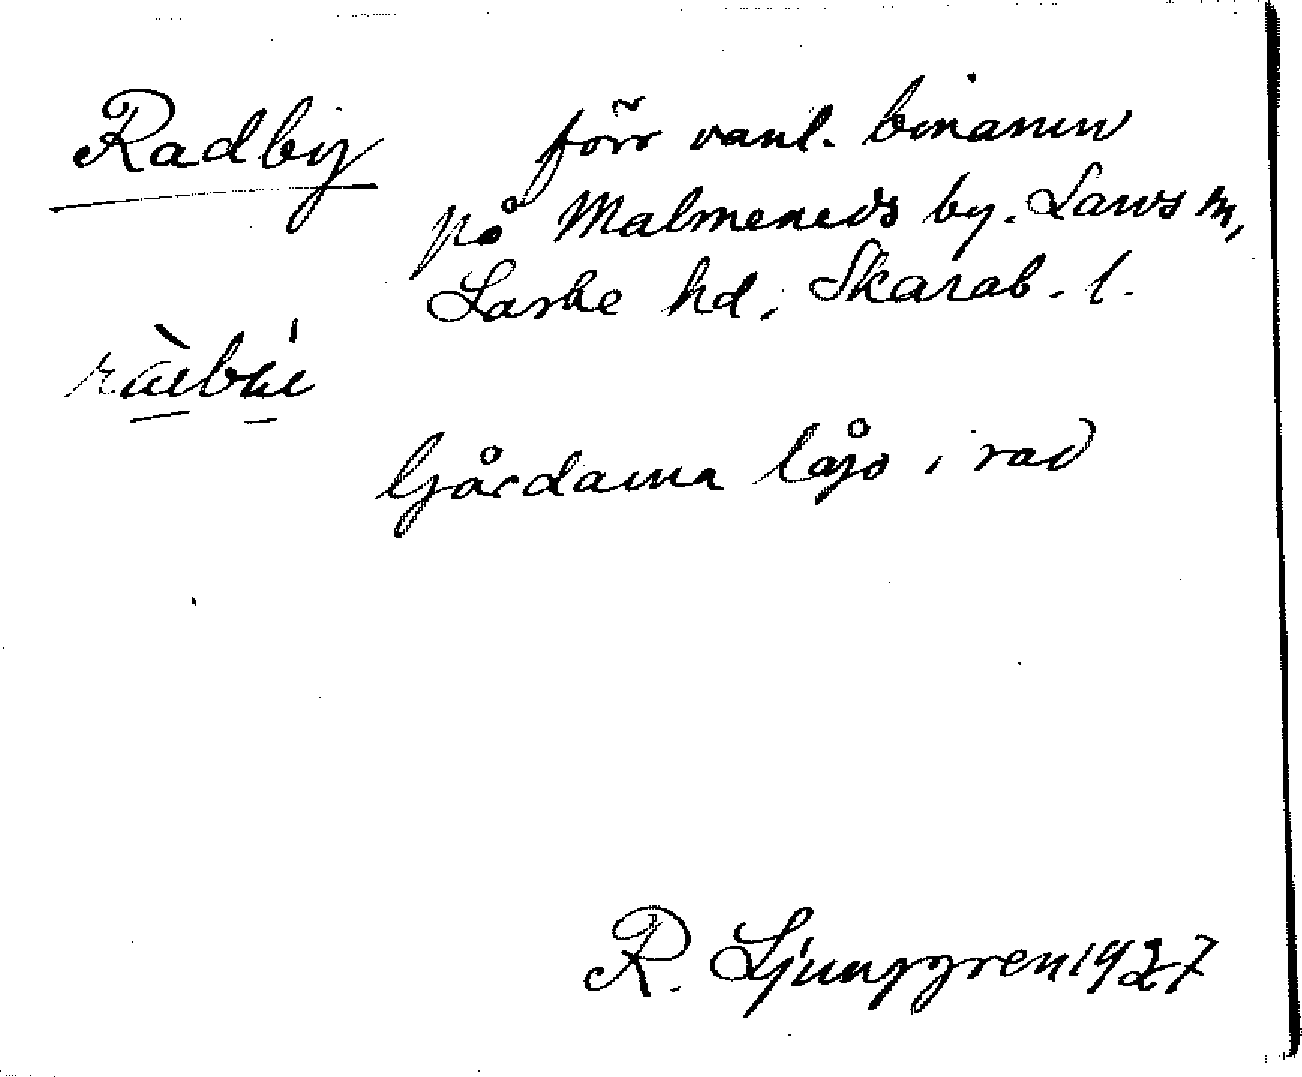 Radby förr vanl. binamn
på Malmeneds by. Larvs sn,
Laske hd, Skarab. l.
Gårdarna lågo i rad
R. Ljunggren 1927